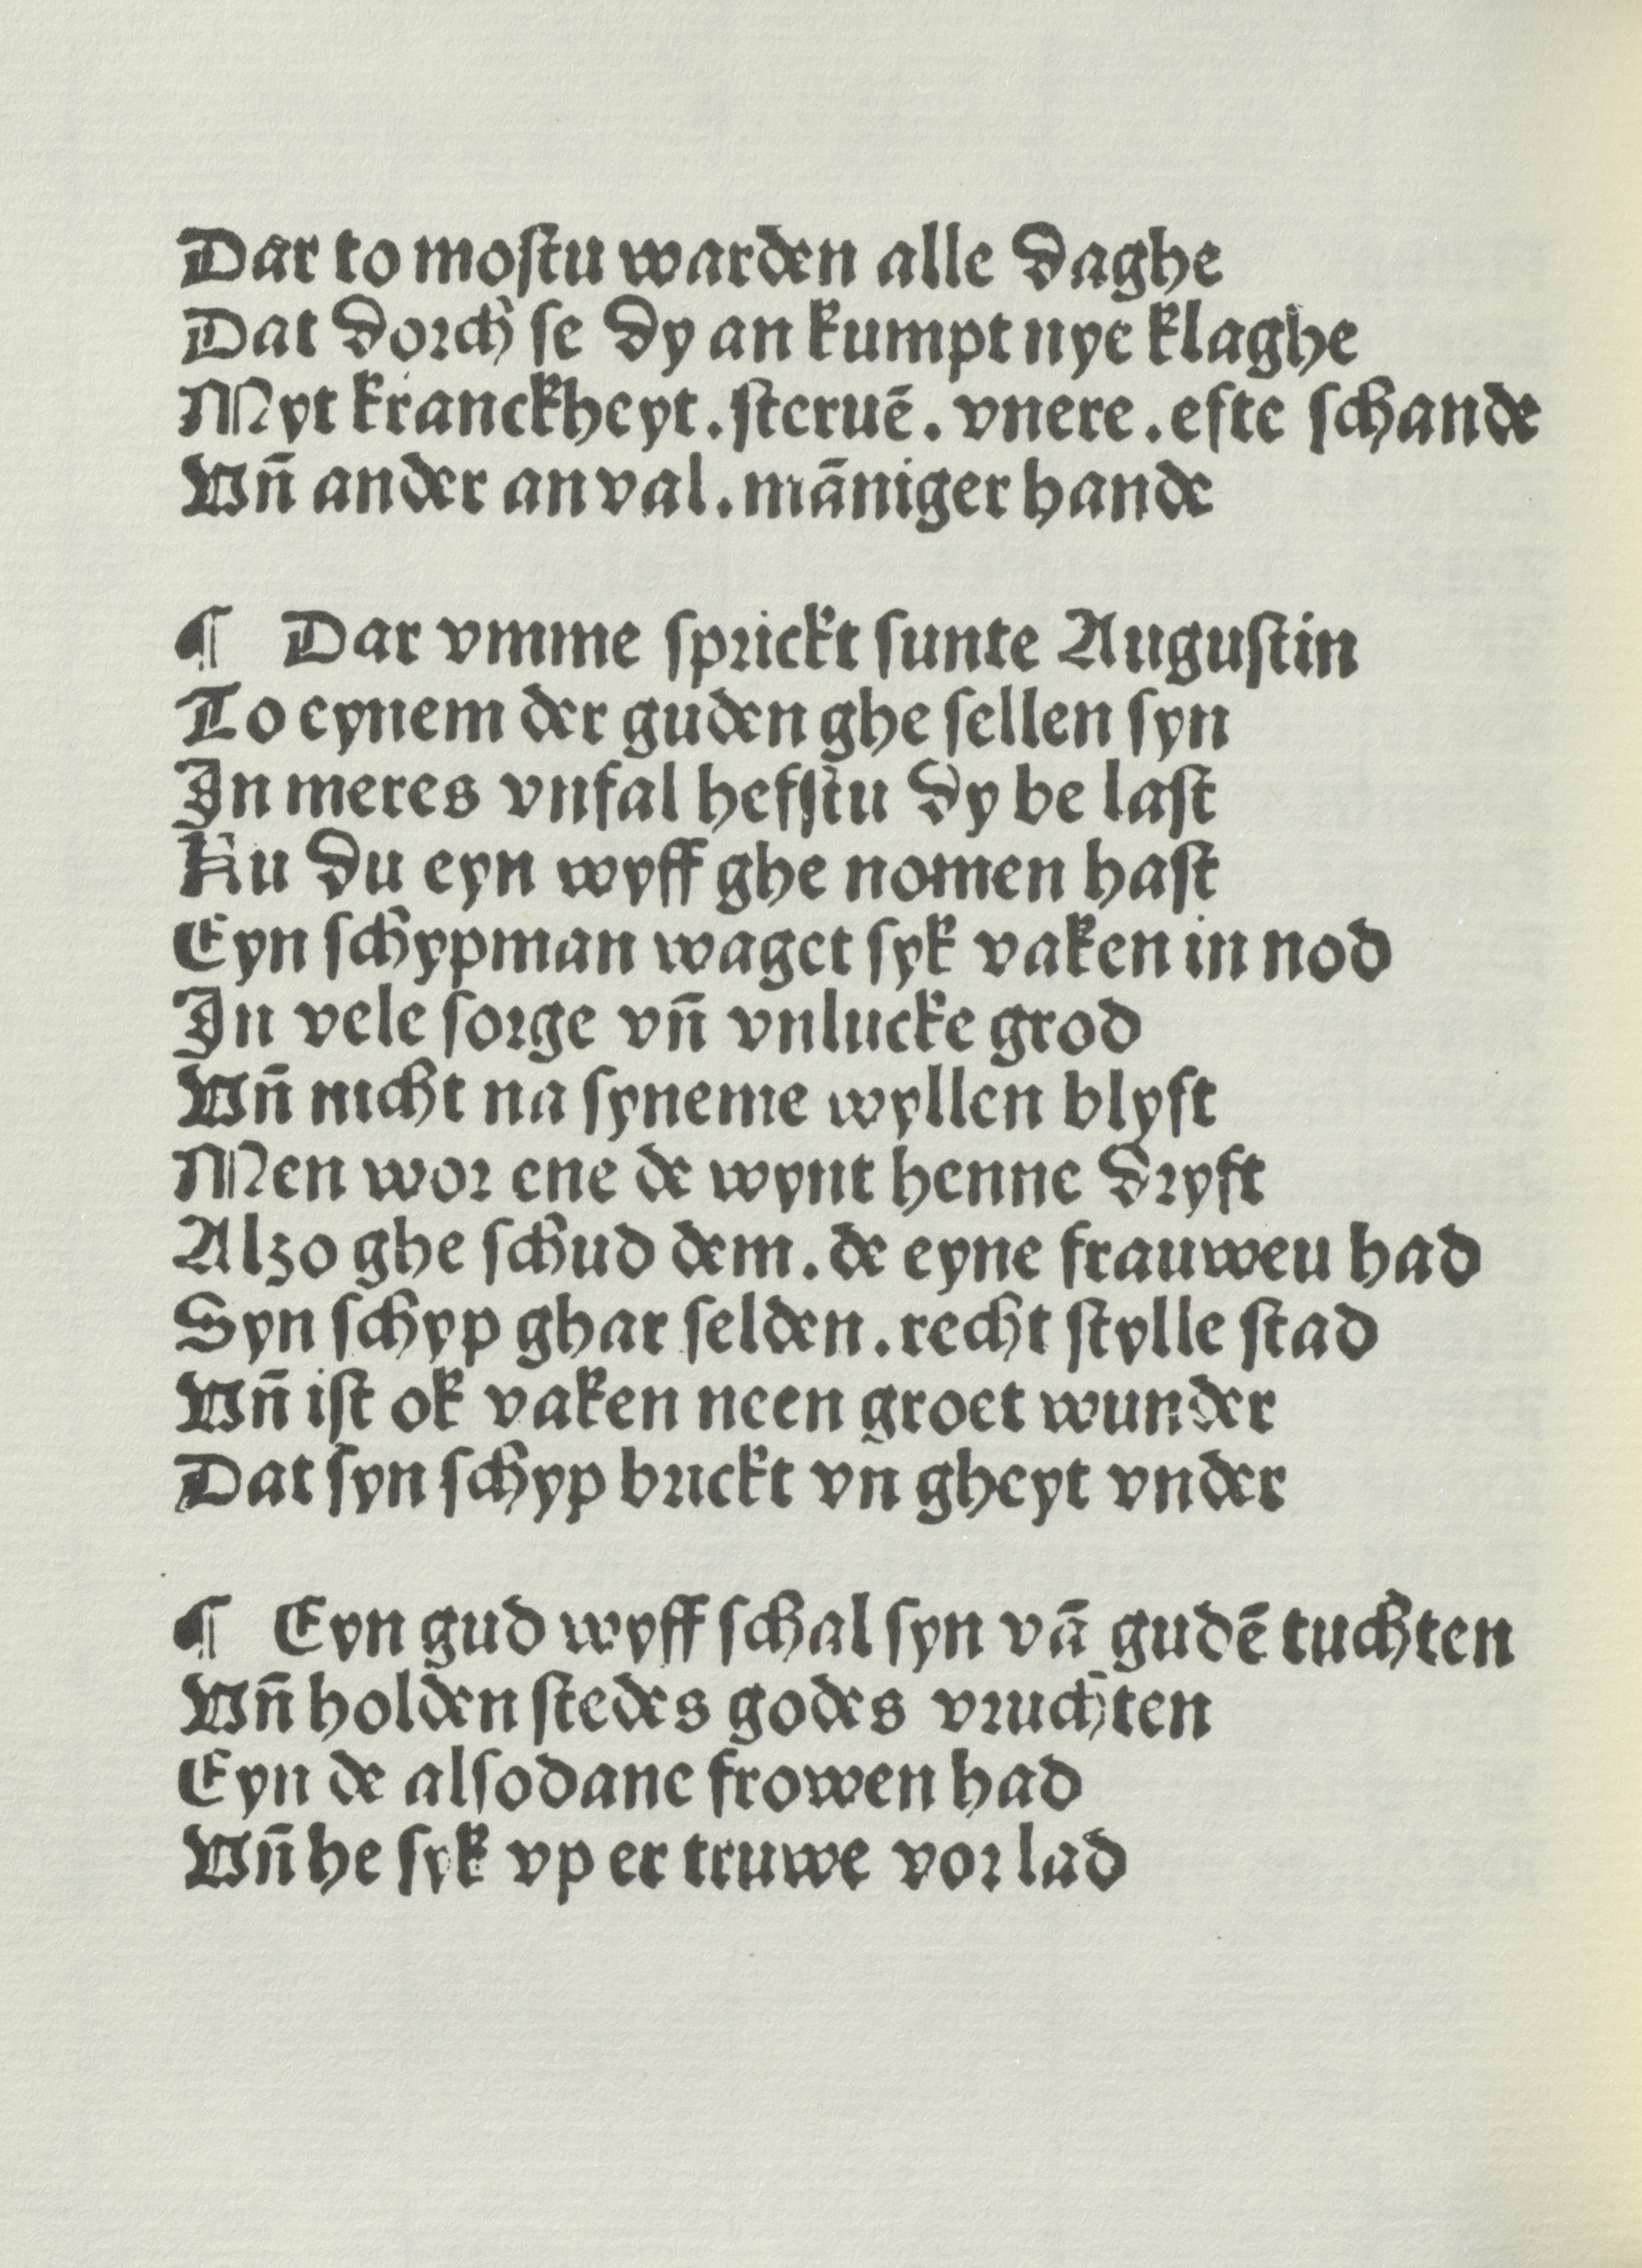 Dar to moſtu warden alle daghe
Dat dorch ſe dy an kumpt nye klaghe
Myt kranckheyt. ſteruē. vnere. efte ſchande
Vn̄ ander an val. māniger hande
¶ Dar vmme ſprickt ſunte Auguſtin
To eynem der guden ghe ſellen ſyn
In meres vnfal hefſtu dy be laſt
Nu du eyn wyff ghe nomen haſt
Eyn ſchypman waget ſyk vaken in nod
In vele ſorge vn̄ vnlucke grod
Vn̄ nicht na ſyneme wyllen blyft
Men wor ene de wynt henne dryft
Alzo ghe ſchud dem. de eyne frauweu had
Syn ſchyp ghar ſelden. recht ſtylle ſtad
Vn̄ iſt ok vaken neen groet wunder
Dat ſyn ſchyp brickt vn gheyt vnder
¶ Eyn gud wyff ſchal ſyn vā gudē tuchten
Vn̄ holden ſtedes godes vruchten
Eyn de alſodane frowen had
Vn̄ he ſyk vp er truwe vor lad